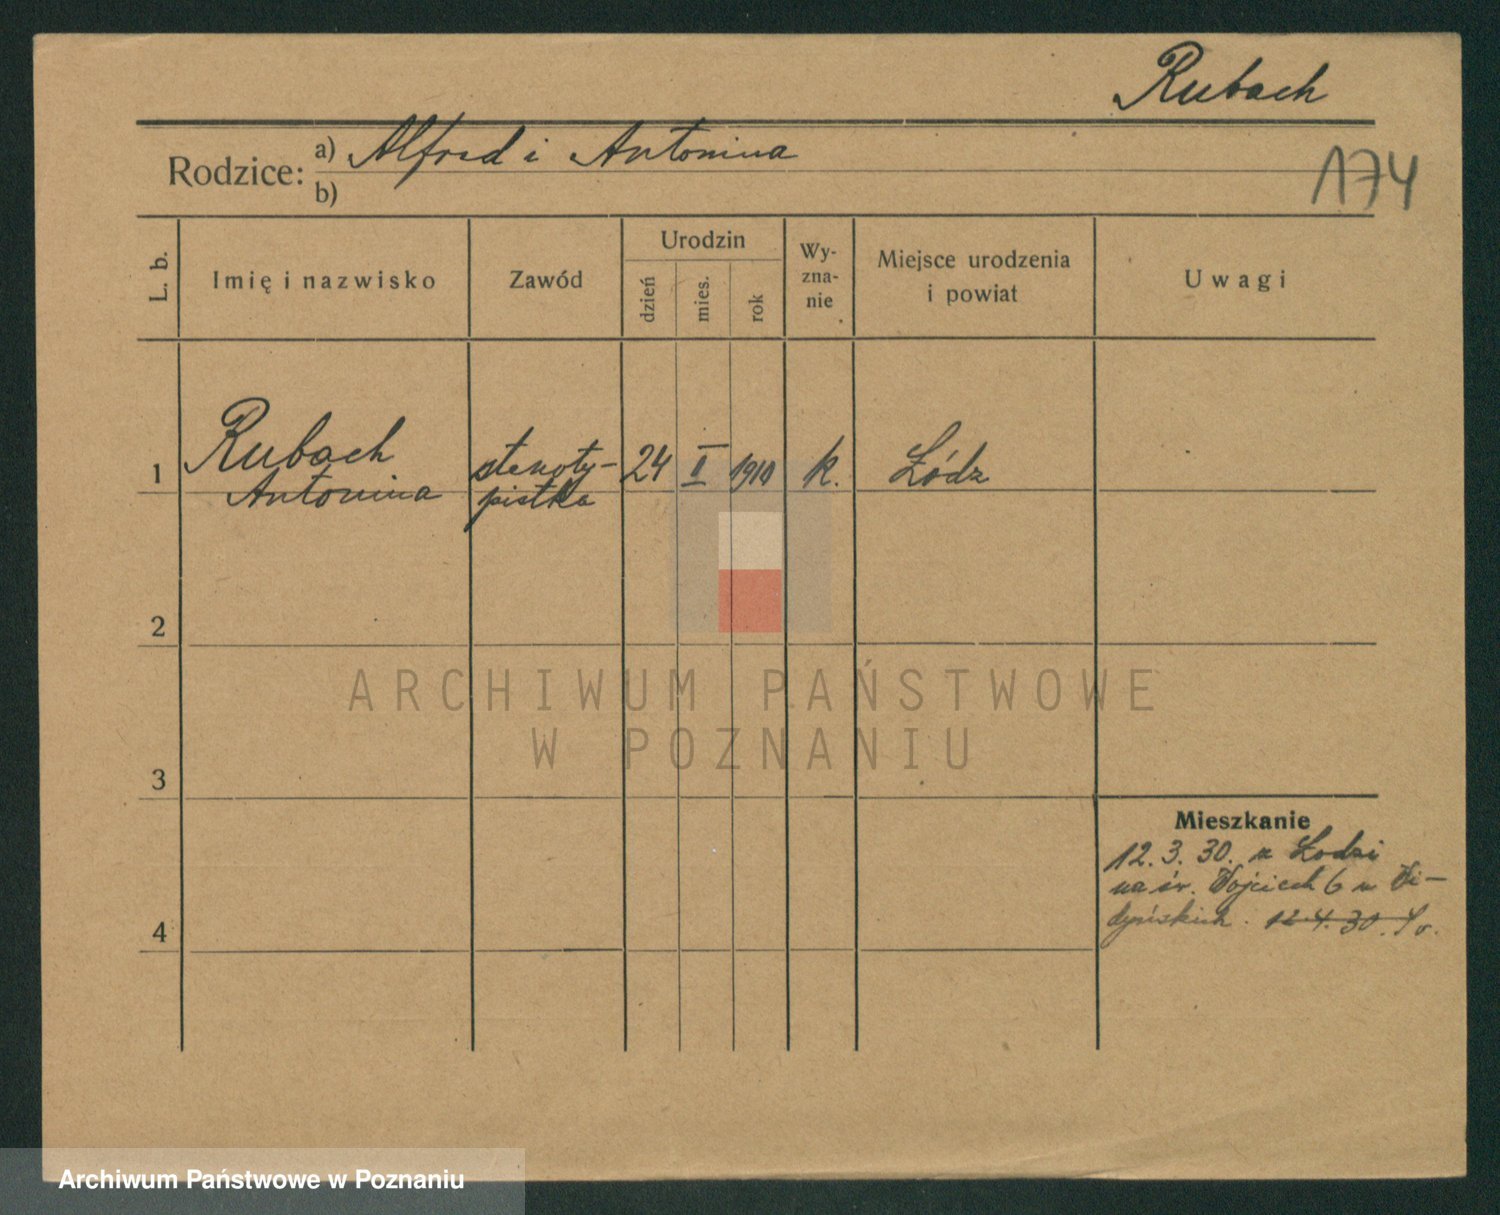 Rubach
Rodzice: a) Alfred i Antonina
b)
174
L. b.
Imię i nazwisko
Zawód
Urodzin
dzień
mies.
rok
Wy-
zna-
nie
Miejsce urodzenia
i powiat
Uwagi
1
Rubach
Antonina
stenoty-
pistka
24 II 1910 k. Łódz
2
3
4
Mieszkanie
12. 3. 30. z Łodzi
na św. Wojciech 6 u
12.4.30.
ARCHIWUM PAŃSTWOWE
W POZNANIU
Archiwum Państwowe w Poznaniu